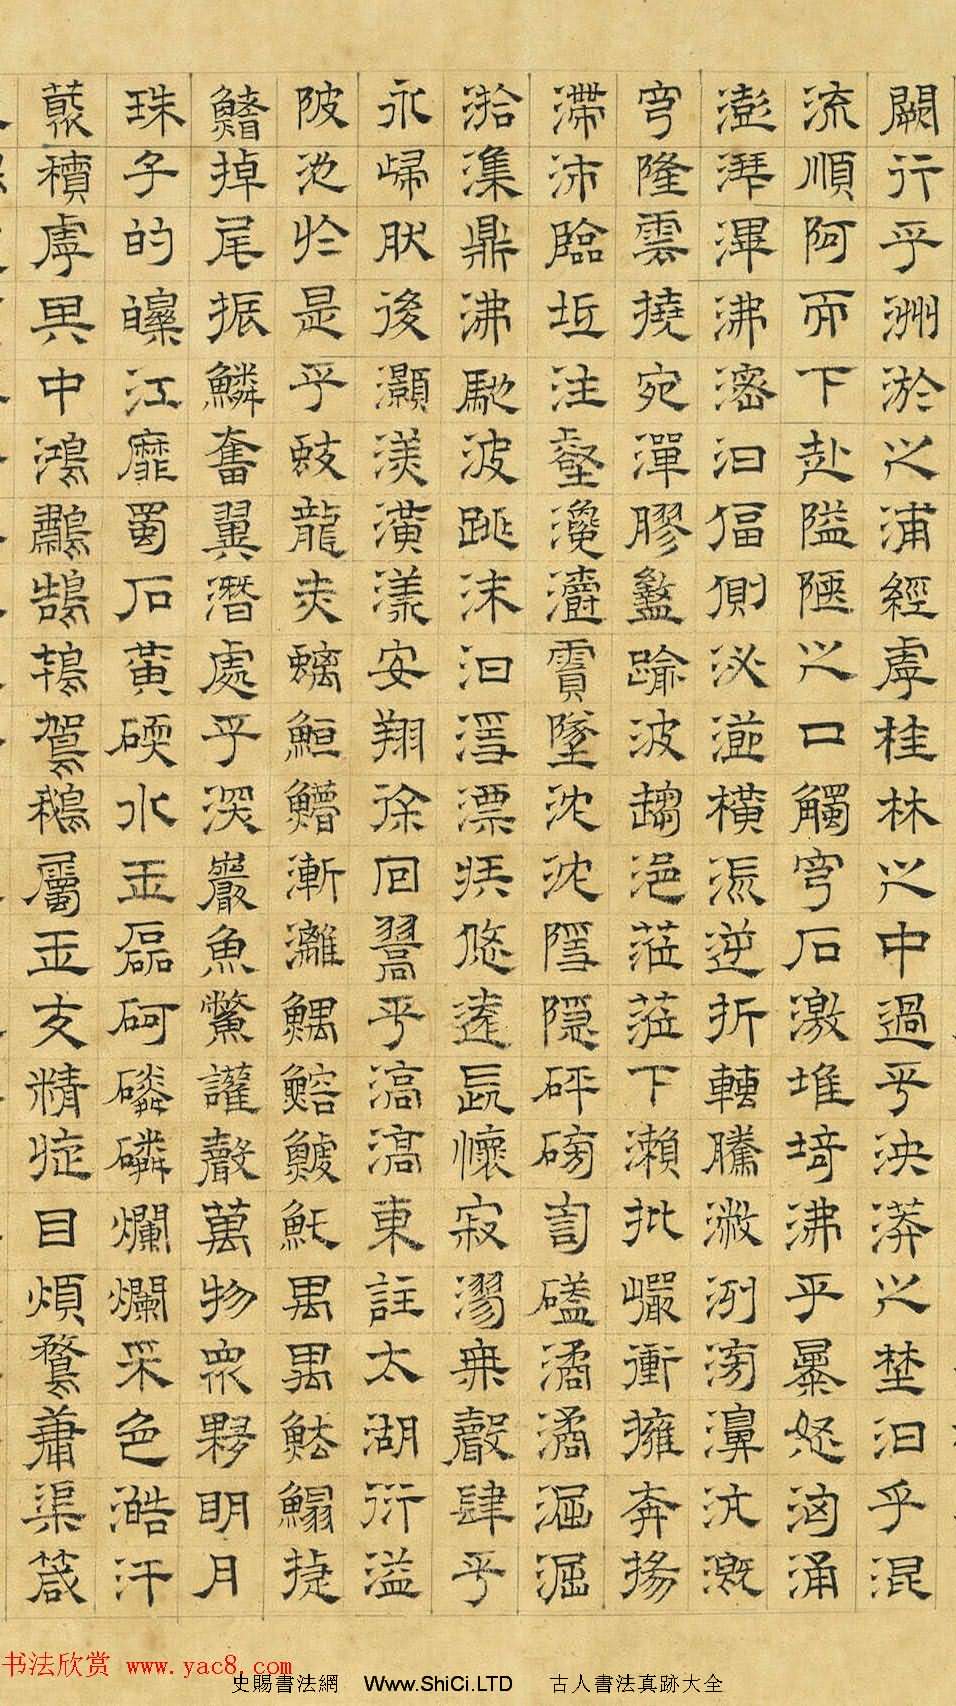 闕行乎洲淤之浦經虖桂林之中過乎泱漭之壄汩乎混
流順阿而下赴隘陿之口觸穹石激堆埼沸乎暴怒洶涌
澎湃滭沸滵汩偪側泌瀄橫流逆折轉騰潎洌滂濞沆溉
穹隆雲撓宛潬膠盭踰波趨浥蒞蒞下瀨批巖衝擁奔揚
滯沛臨坻注壑瀺灂霣墜沈沈隱隱砰磅訇磕潏潏淈淈
湁潗鼎沸馳波跳沫汩漂疾悠遠長懷寂漻無聲肆乎
永歸肰後灝溔潢漾安翔徐回翯乎滈滈東註太湖衍溢
陂池於是乎蛟龍赤螭䱭䲛漸離鰅鰫鰬魠禺禺魼鰨揵
鰭掉尾振鱗奮翼潛處乎深巖魚鱉讙聲萬物衆夥明月
珠子的皪江靡蜀石黃碝水玉磊砢磷磷爛爛采色澔汗
藂積虖其中鴻鷫鵠鴇鴐鵝屬玉交精旋目煩鶩庸渠箴
书法欣赏 www.yac8.com
史賜書法網 Www.ShiCi.LTD 古人書法真跡大全